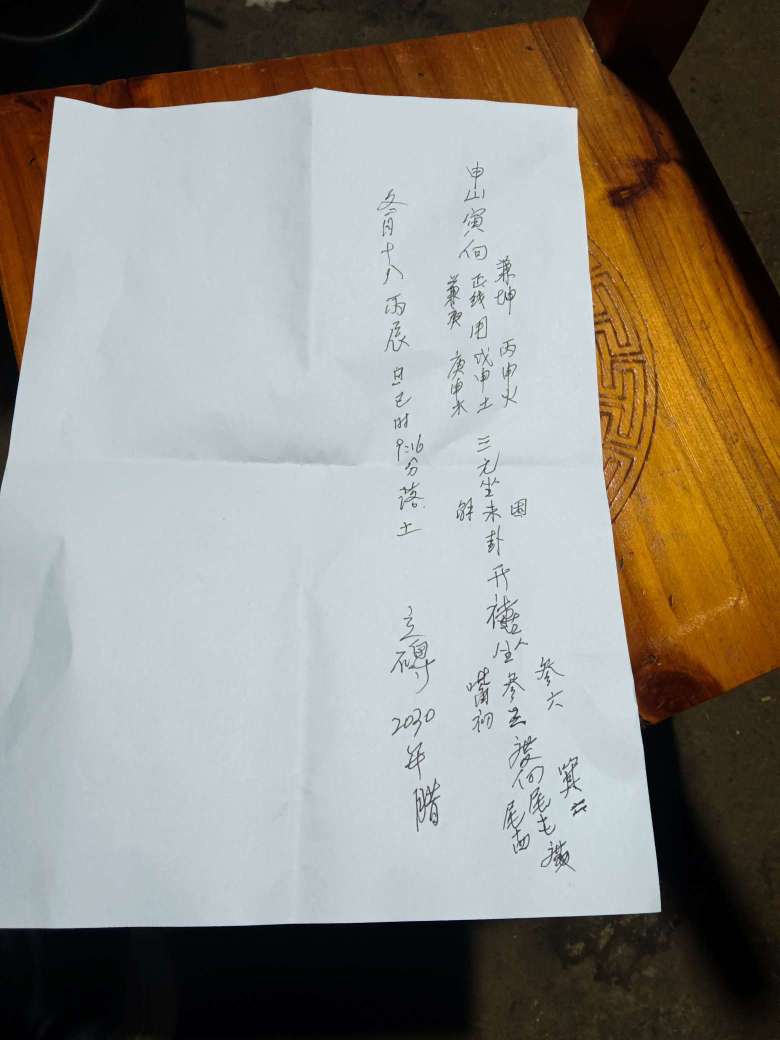 兼坤 丙申火 困 参六 箕
申山寅向 正线用戊申土 三元坐未卦 开禧坐参 度向尾 度
兼庚 庚申木 解 觜初 尾
冬月十八 丙辰日巳时9:16分落土
立碑 2030年腊